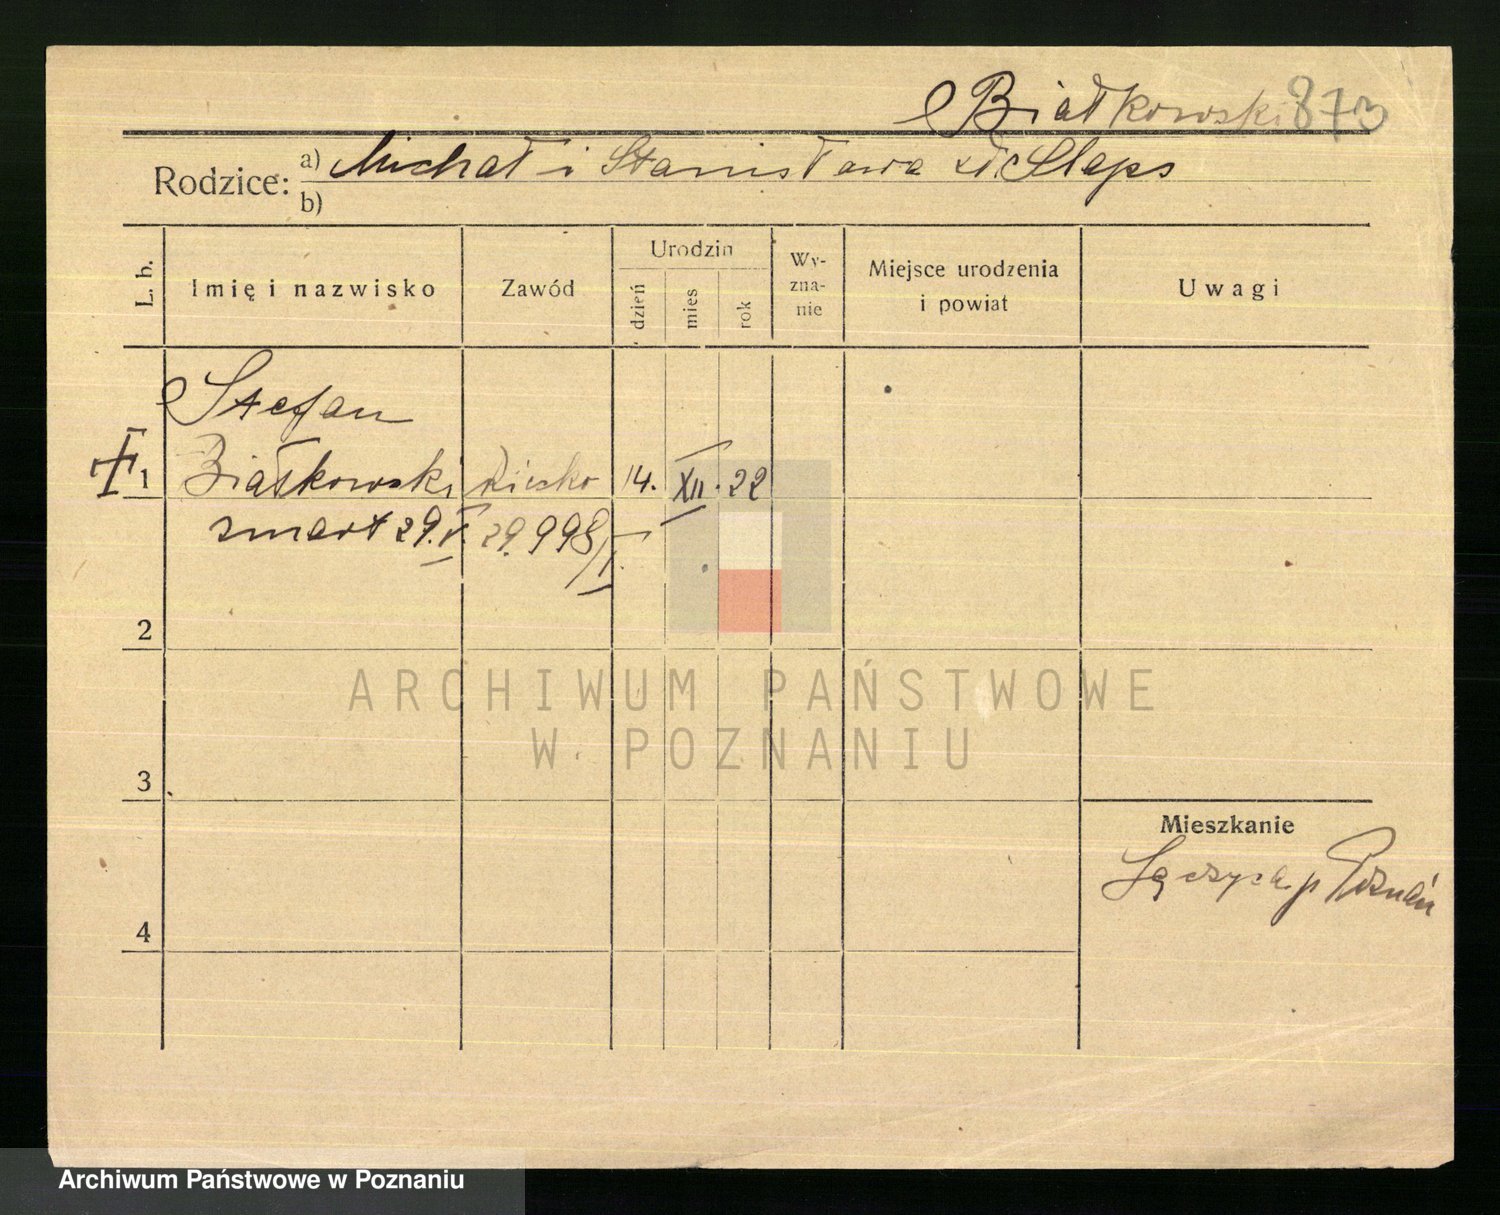 Białkowski 873
Rodzice: a) Michał i Stanisława
b)
L. b. Imię i nazwisko Zawód Urodzin dzień mies rok Wy-zna-nie Miejsce urodzenia i powiat Uwagi
Stefan
1 Białkowski 14. XII. 22
zmarł 29. V. 29. 998/I.
2
ARCHIWUM PAŃSTWOWE
W POZNANIU
3
Mieszkanie
p Poznań
4
Archiwum Państwowe w Poznaniu